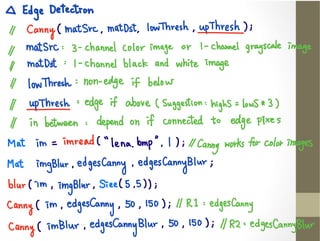 △ Edge Detection
// Canny ( matSrc , matDst , lowThresh , upThresh ) ;
// matSrc : 3-channel color image or 1-channel grayscale image
// matDst : 1-channel black and white image
// lowThresh : non-edge if below
// upThresh : edge if above ( Suggestion : highS = lowS * 3 )
// in between : depend on if connected to edge pixes
Mat im = imread ( "lena.bmp" , 1 ) ; // Canny works for color images
Mat imgBlur , edgesCanny , edgesCannyBlur ;
blur ( im , imgBlur , Size ( 5 , 5 ) ) ;
Canny ( im , edgesCanny , 50 , 150 ) ; // R1 : edgesCanny
Canny ( imBlur , edgesCannyBlur , 50 , 150 ) ; // R2 : edgesCannyBlur